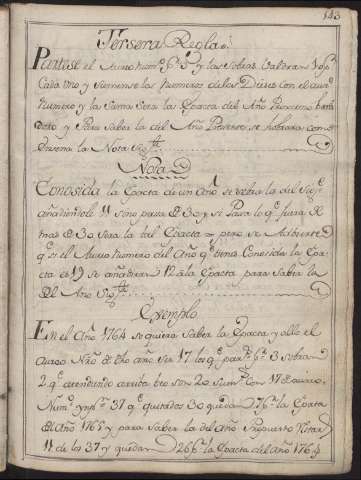 143
Tersera Regla
Partase el Aureo Num.º p.r 3 y las sobras Valdran 10 p.r
Cada Uno y Sumense los Numeros delos Dieses con el aur.º
Numero y la Suma Sera la Epacta del Año Proximo
y Para Saber la del Año Presente se
la Nota Sig.te
Nota
Conosida la Epacta de un Año se la del Sig.te
añadiendole 11 Sino pasa de 30 y si Pasa lo q.e fuera
mas de 30 Sera la tal Epacta = pero se Advierte
q.e si el Aureo Numero del Año q.e tiene Conosida la Epa
cta es 19 se añadiran 12 a la Epacta para Saber la
del Año Sig.te
Exemplo
En el Año 1764 se quiere Saber la Epacta y
aureo N.ro de dho año Ser 17 los q.e par.dos p.r 3 sobran
2 q.e atendiendo arriba son 20 Sum.dos Con 17 de aureo
Num.º 37 q.e quitados 30 quedan 7 la Epacta
del Año 1765 y para Saber la del Año Propuesto
11 de los 37 y quedan 26 la Epacta del Año 1764